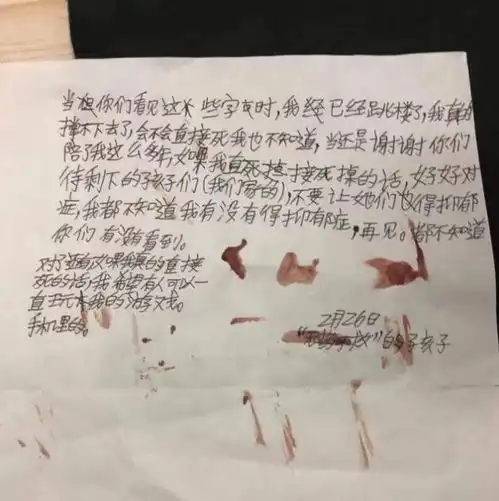 当你们看见这些字时,我已经跳楼了,我真的
撑不下去了,会不会直接死我也不知道,当还是谢谢你们
陪了我这么多年,如果我直接死掉的话,好好对
待剩下的孩子们(我们家的),不要让她们也得抑郁
症,我都不知道我有没有得抑郁症,再见。都不知道
你们有没有看到。
对了,如果我真的直接
死的话,我希望有人可以一
直玩我的游戏。
手机里的。
2月26日
的好孩子